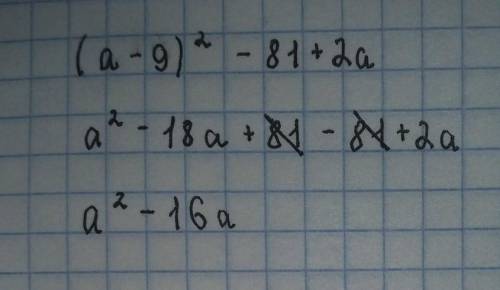 (a - 9)² - 81 + 2a
a² - 18a + 81 - 81 + 2a
a² - 16a